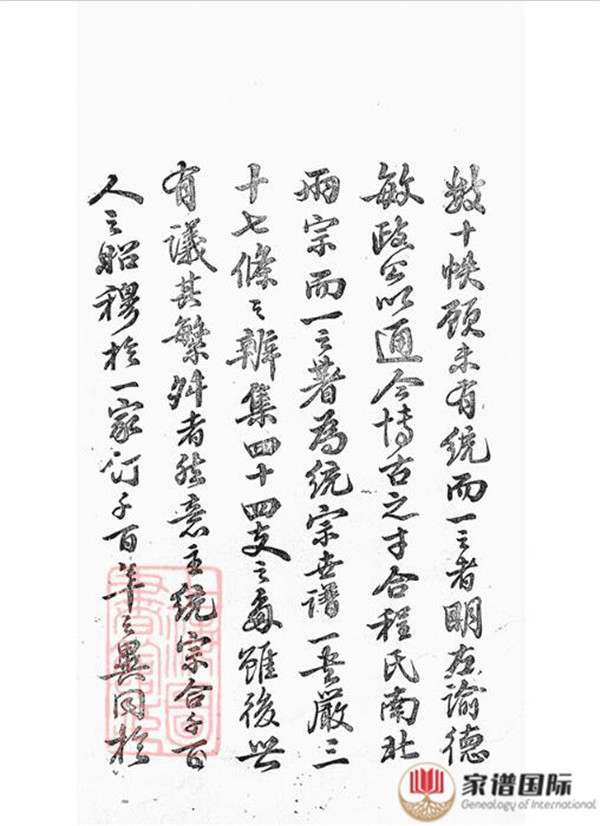 數十帙顧未有統而一之者明左諭德
敏政公以通今博古之才合程氏南北
兩宗而一之著為統宗世譜一書嚴三
十七條之辨集四十四支之委雖後世
有議其繁舛者然意主統宗合千百
人之昭穆於一家訂千百年之異同於
家谱国际
Genealogy of International